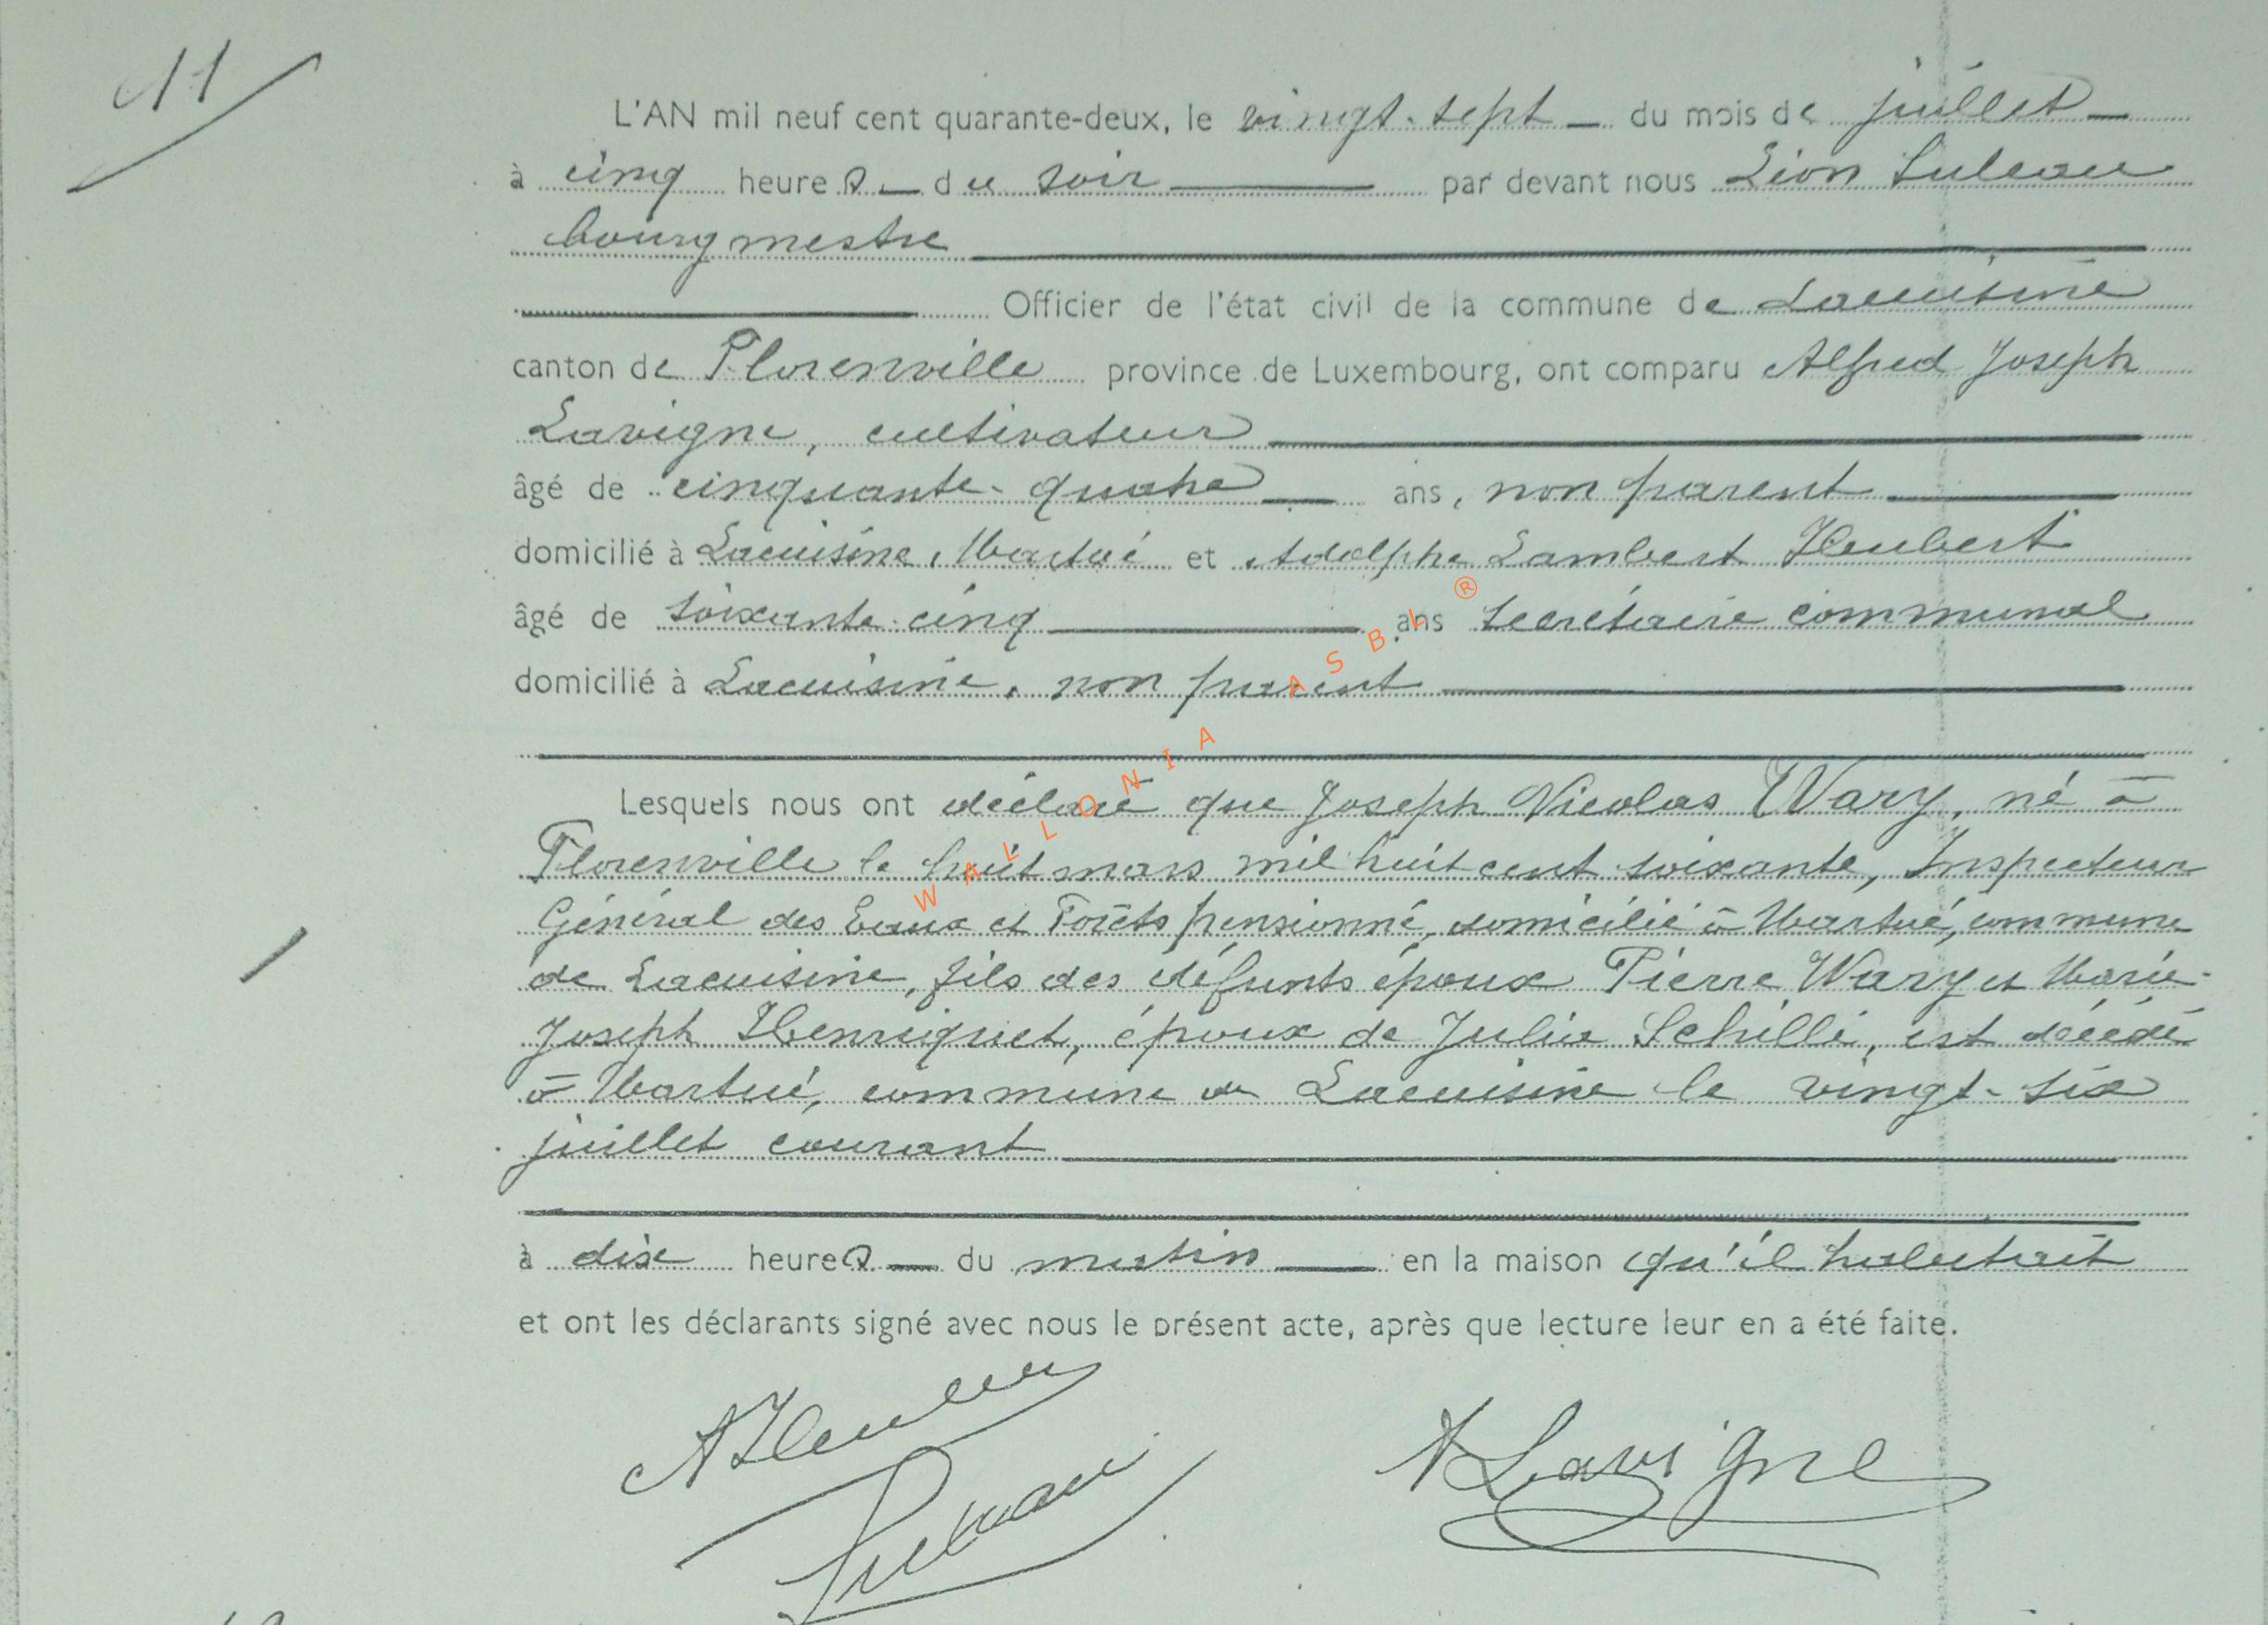 11
L'AN mil neuf cent quarante-deux, le vingt-sept du mois de juillet
à cinq heures du soir par devant nous Léon Suleau
bourgmestre
Officier de l'état civil de la commune de Lacuisine
canton de Florenville province de Luxembourg, ont comparu Alfred Joseph
Lavigne, cultivateur
âgé de cinquante-quatre ans, non parent
domicilié à Lacuisine, Martué et Adolphe Lambert Heubert
âgé de soixante-cinq ans secrétaire communal
domicilié à Lacuisine, non parent
Lesquels nous ont déclaré que Joseph Nicolas Wary, né à
Florenville le huit mars mil huit cent soixante, Inspecteur
Général des Eaux et Forêts pensionné, domicilié à Martué, commune
de Lacuisine, fils des défunts époux Pierre Wary et Marie-
Joseph Henriquet, époux de Julia Schilli, est décédé
à Martué, commune de Lacuisine le vingt-six
juillet courant
à dix heures du matin en la maison qu'il habitait
et ont les déclarants signé avec nous le présent acte, après que lecture leur en a été faite.
ALavigne
WALLONIA ASBL ®